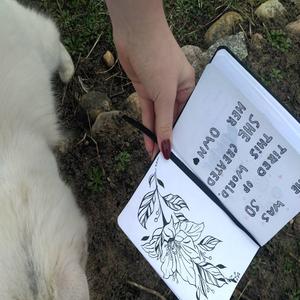 WAS SO
TIRED OF
THIS WORLD
SHE CREATED
HER OWN